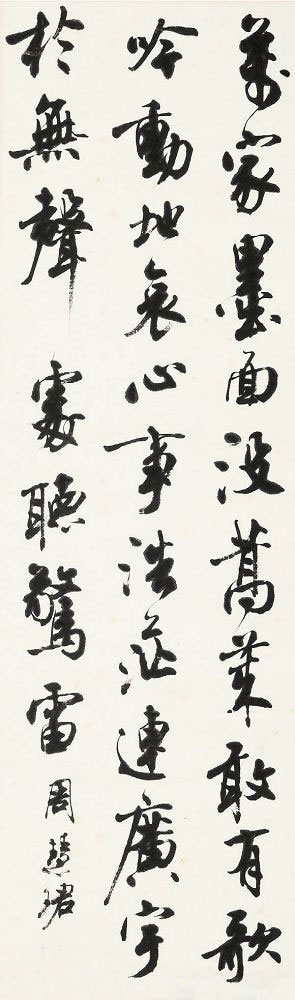 萬家墨面没蒿萊敢有歌
吟動地哀心事浩茫連廣宇
於無聲 處聽驚雷 周慧珺